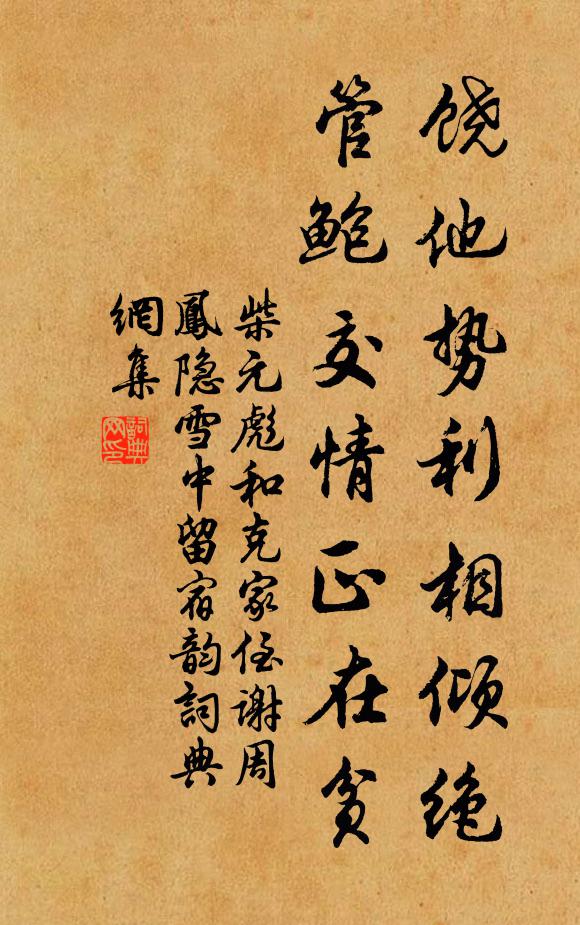 饶他势利相倾绝
管鲍交情正在贫
柴元彪和克家侄谢周
鳳隐雪中留宿韵詞典
網集
詞典
网印